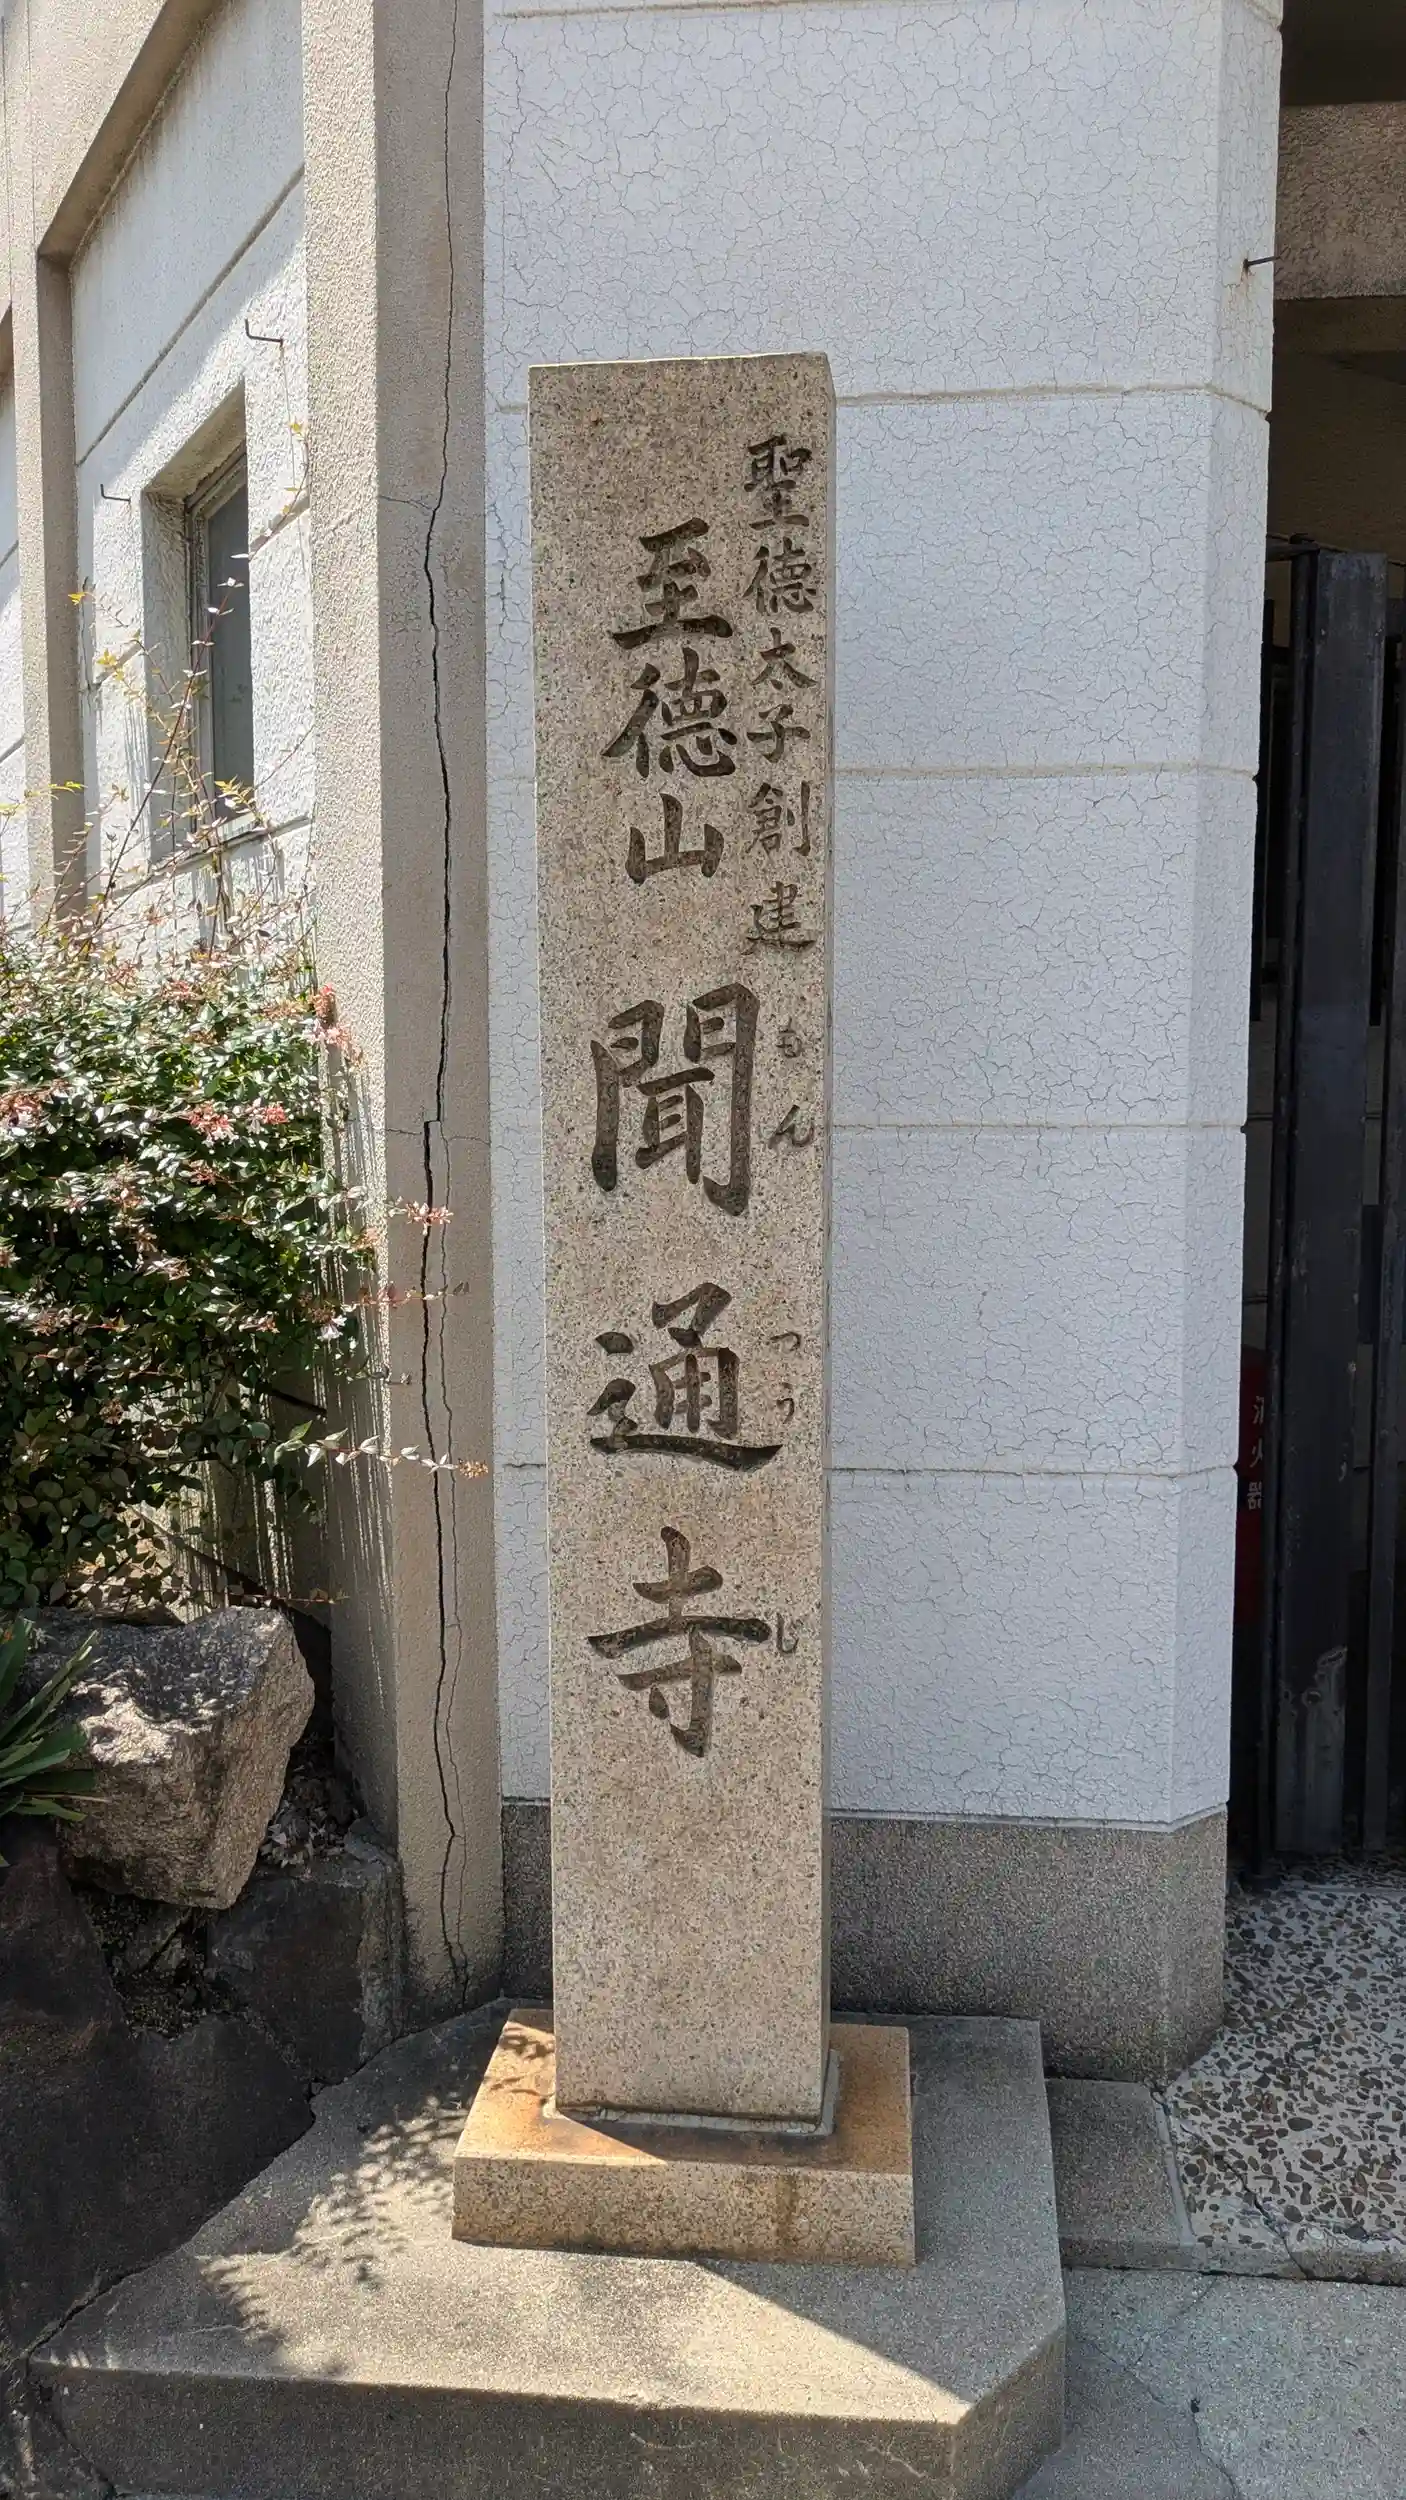 聖徳太子創建
至徳山 聞通寺
もんつうじ
消火器